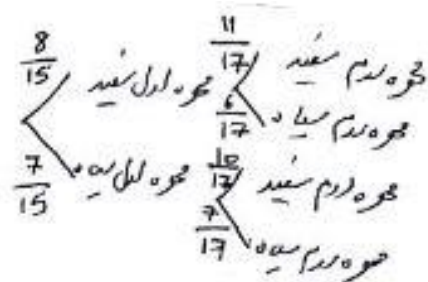 8/15 مهره اول سفید
7/15 مهره اول سیاه
11/17 مهره دوم سفید
6/17 مهره دوم سیاه
10/17 مهره دوم سفید
7/17 مهره دوم سیاه